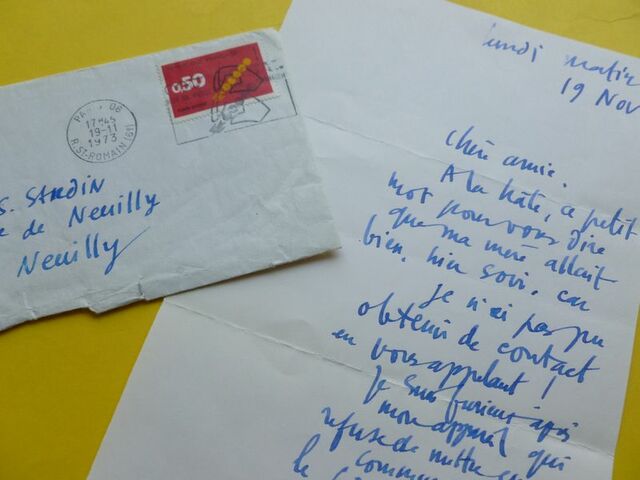 0.50
PARIS 06
17H45
19-11
1973
R.ST-ROMAIN (6E)
S. SARDIN
de Neuilly
Neuilly
lundi matin
19 Nov
Chère amie.
A la hâte, ce petit
mot pour vous dire
que ma mère allait
bien, hier soir, car
Je n'ai pas pu
obtenir de contact
en vous appelant !
Je suis furieux après
mon appareil qui
refuse de mettre en
le